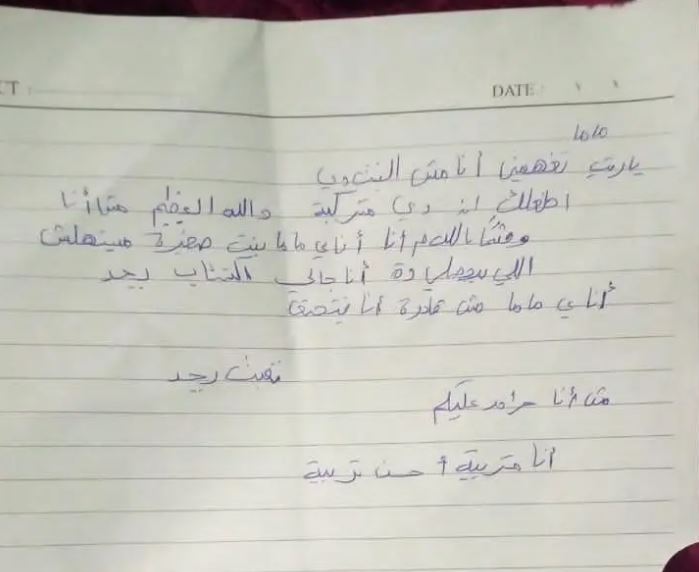 CT:
DATE:
ماما
ياريت تفهمينى أنا مش البنت دي
اطلاقا ان دي متركبة والله العظيم مش أنا
وقسما بالله دم انا أناي ماما بنت صغيرة مينهلش
اللي بيحصلي دة أنا جالى اكتئاب بجد
أناي ماما مش قادرة أنا بتخنق
تعبت بجد
مش أنا حرام عليكم
أنا متربية أحسن تربية